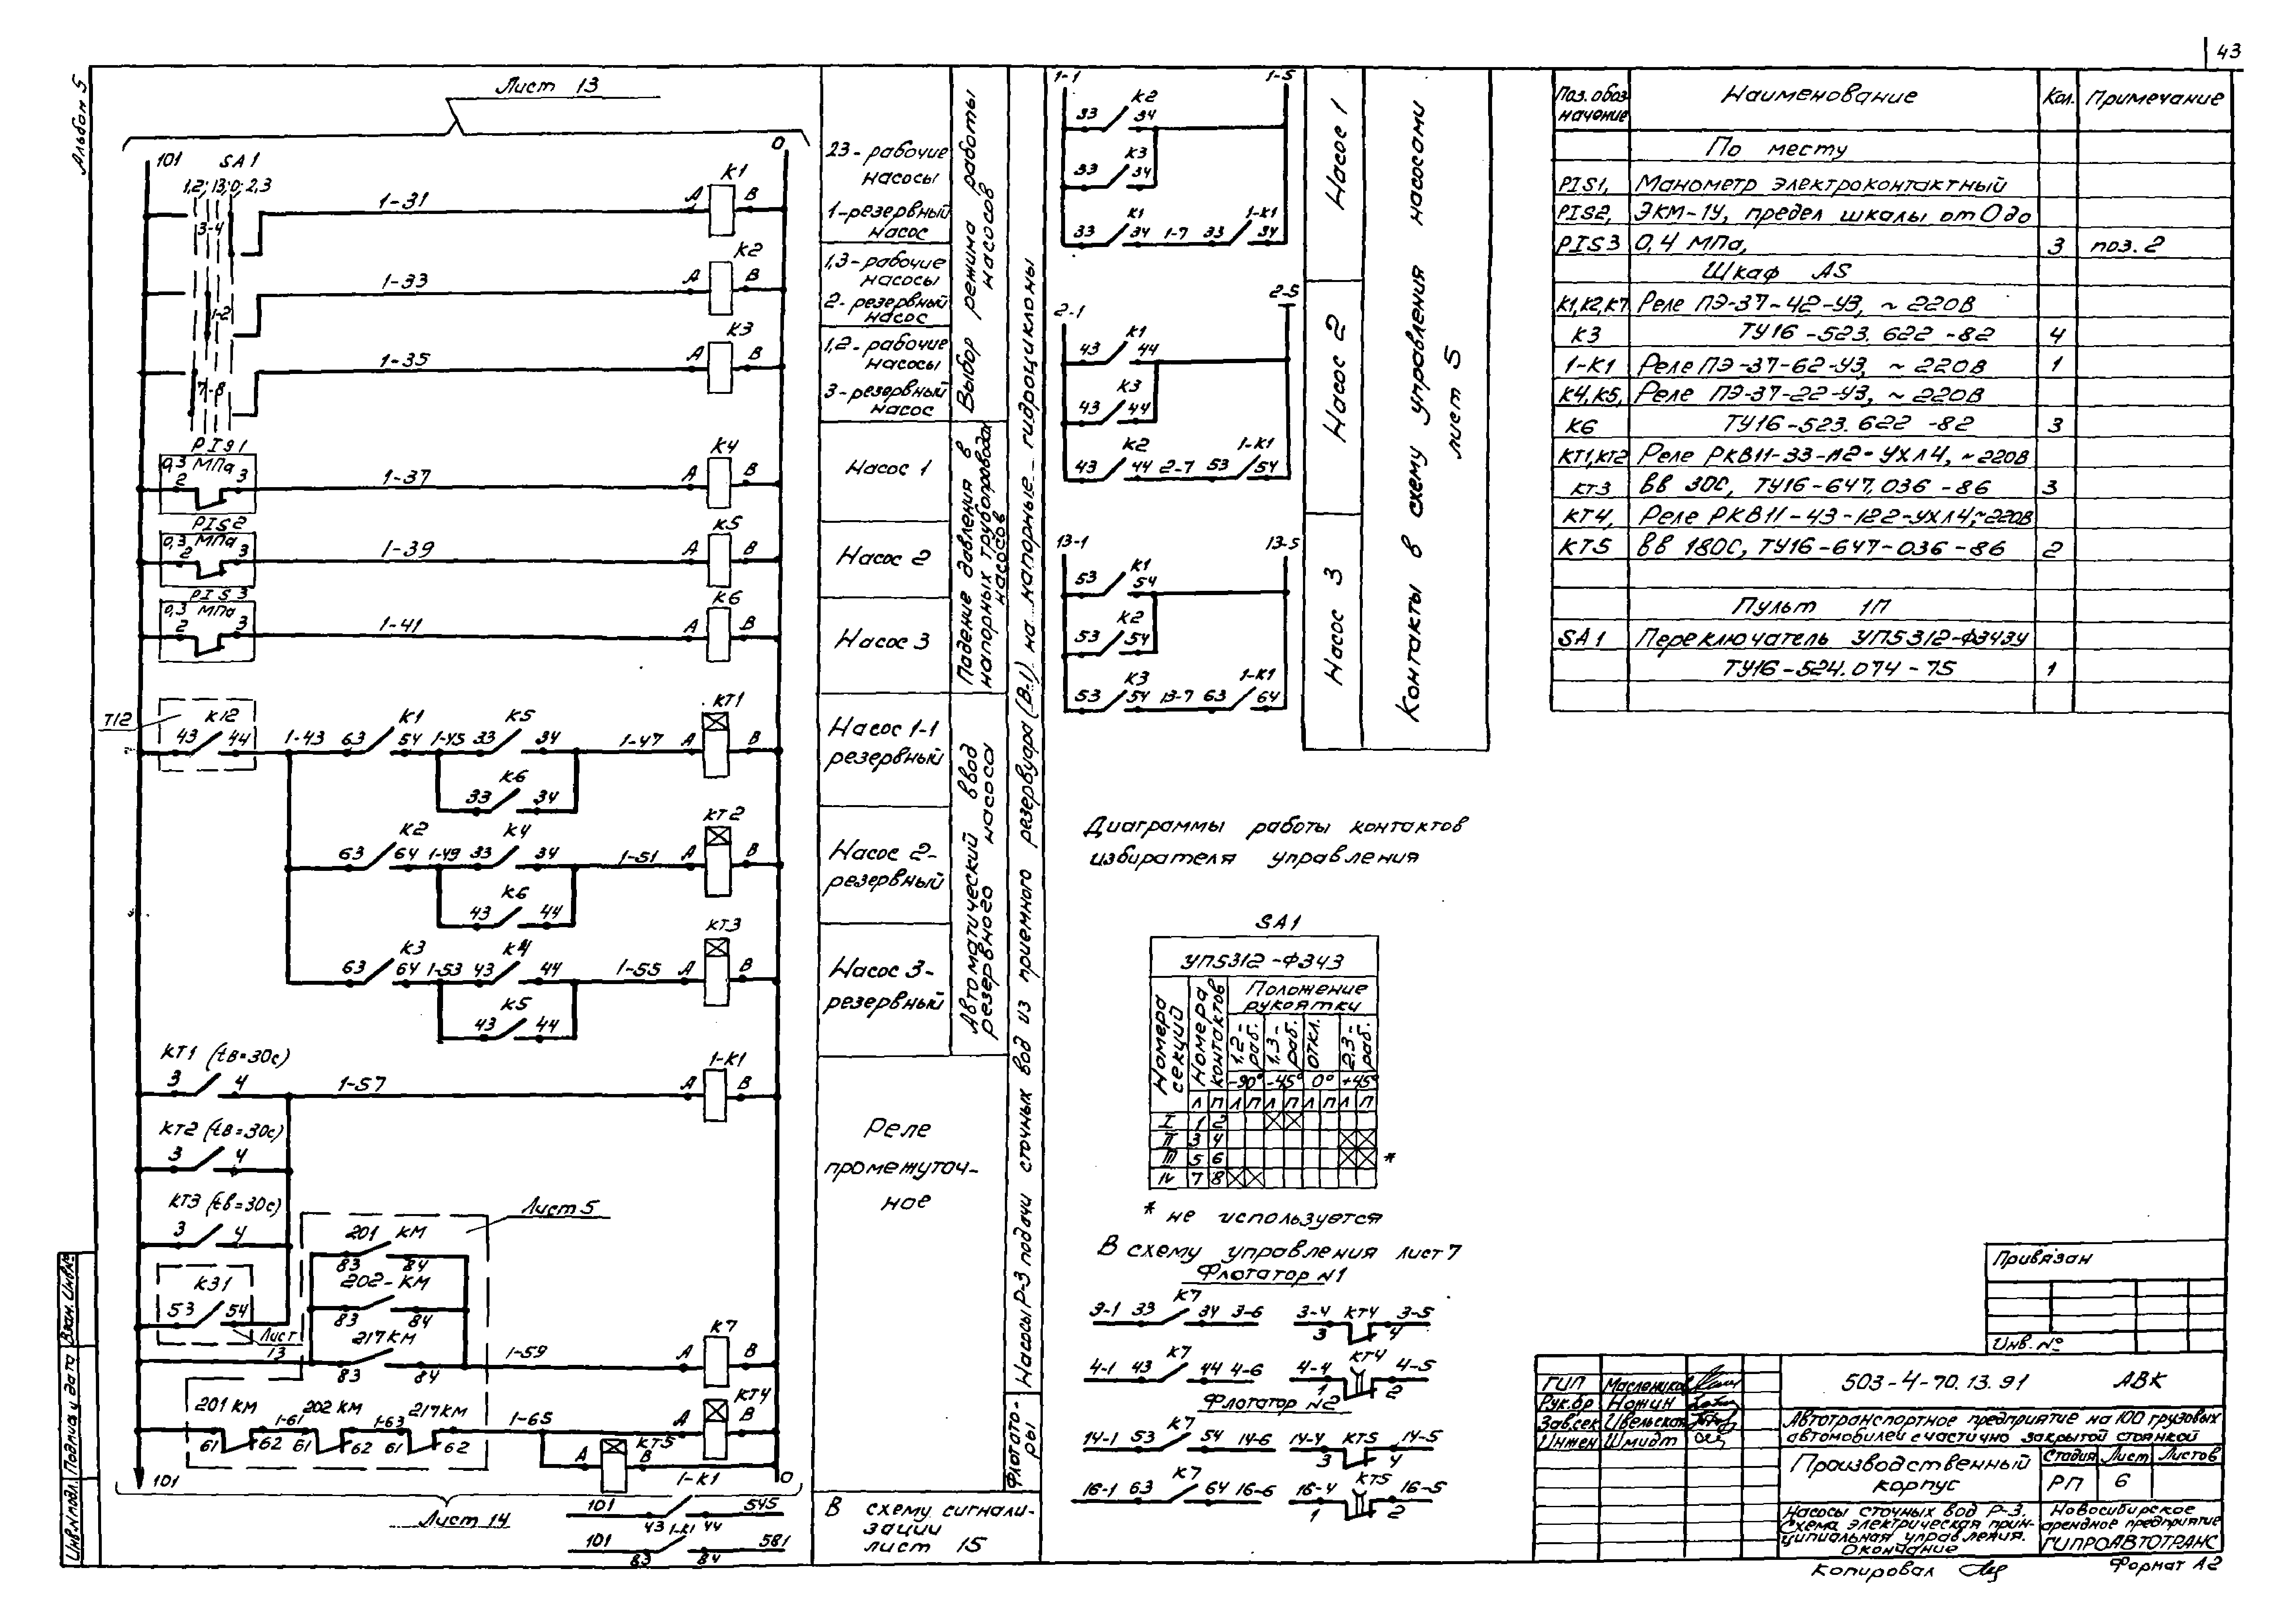 43
Альбом 5
Лист 13
101
0
SA1
1,2; 13; 0; 2,3
3-4
1-2
7-8
1-31
A
K1
B
1-33
A
K2
B
1-35
A
K3
B
PIS1
0,3 МПа
2
3
1-37
A
K4
B
PIS2
0,3 МПа
2
3
1-39
A
K5
B
PIS3
0,3 МПа
2
3
1-41
A
K6
B
T12
K12
43
44
1-43
63
K1
54
1-45
33
K5
34
1-47
A
KT1
B
33
K6
34
63
K2
64
1-49
33
K4
34
1-51
A
KT2
B
43
K6
44
63
K3
64
1-53
43
K4
44
1-55
A
KT3
B
43
K5
44
KT1 (tв=30с)
3
4
1-57
A
1-K1
B
KT2 (tв=30с)
3
4
KT3 (tв=30с)
3
4
K31
53
54
Лист
13
Лист 5
201 КМ
83
84
202-КМ
83
84
217КМ
83
84
1-59
A
K7
B
201 КМ
61
62
1-61
202 КМ
61
62
1-63
217КМ
61
62
1-65
A
KT4
B
A
KT5
B
101
0
Лист 14
101
1-K1
43
44
545
101
1-K1
83
84
581
23-рабочие
насосы
1-резервный
насос
1,3-рабочие
насосы
2-резервный
насос
1,2-рабочие
насосы
3-резервный
насос
Выбор режима работы
насосов
Насос 1
Насос 2
Насос 3
Падение давления в
напорных трубопроводах
насосов
Насос 1-1
резервный
Насос 2-
резервный
Насос 3-
резервный
Автоматический ввод
резервного насоса
Реле
промежуточ-
ное
Насосы Р-3 подачи сточных вод из приемного резервуара (В-1) на напорные гидроциклоны
Флотато-
ры
В схему сигнали-
зации
лист 15
1-1
1-5
33
K2
34
33
K3
34
33
K1
34
1-7
33
1-K1
34
2-1
2-5
43
K1
44
43
K3
44
43
K2
44
2-7
53
1-K1
54
13-1
13-5
53
K1
54
53
K2
54
53
K3
54
13-7
63
1-K1
64
Насос 1
Насос 2
Насос 3
Контакты в схему управления насосами
лист 5
Диаграммы работы контактов
избирателя управления
SA1
УП5312-Ф343
Номера
секций
Номера
контактов
Положение
рукоятки
1,2-
раб.
1,3-
раб.
откл.
2,3-
раб.
-90° -45° 0° +45°
Л П Л П Л П Л П Л П
I 1 2
II 3 4
III 5 6 *
IV 7 8
* не используется
В схему управления лист 7
Флотатор N1
3-1 33 K7 34 3-6
3-4 KT4 3-5
3 4
4-1 43 K7 44 4-6
4-4 KT4 4-5
1 2
Флотатор N2
14-1 53 K7 54 14-6
14-4 KT5 14-5
3 4
16-1 63 K7 64 16-6
16-4 KT5 16-5
1 2
Поз. обоз-
начение
Наименование
Кол.
Примечание
По месту
PIS1, Манометр электроконтактный
PIS2, ЭКМ-1У, предел шкалы от 0 до
PIS3 0,4 МПа, 3 поз. 2
Шкаф AS
K1,K2,K7 Реле ПЭ-37-42-У3, ~220В
K3 ТУ16-523.622-82 4
1-K1 Реле ПЭ-37-62-У3, ~220В 1
K4,K5, Реле ПЭ-37-22-У3, ~220В
K6 ТУ16-523.622-82 3
KT1,KT2 Реле РКВ11-33-112-УХЛ4, ~220В
KT3 ВВ 30С, ТУ16-647.036-86 3
KT4, Реле РКВ11-43-122-УХЛ4,~220В
KT5 ВВ 180С, ТУ16-647-036-86 2
Пульт 1П
SA1 Переключатель УП5312-Ф343У
ТУ16-524.074-75 1
Привязан
Инв. №
ГИП Маслеников
Рук.бр Ножин
Зав.сек Ивельская
Инжен Шмидт
503-4-70.13.91 АВК
Автотранспортное предприятие на 100 грузовых
автомобилей с частично закрытой стоянкой
Производственный
корпус
Стадия Лист Листов
РП 6
Насосы сточных вод Р-3.
Схема электрическая прин-
ципиальная управления.
Окончание
Новосибирское
арендное предприятие
ГИПРОАВТОТРАНС
Копировал
Формат А2
Инв.N подл. Подпись и дата Взам. Инв.N